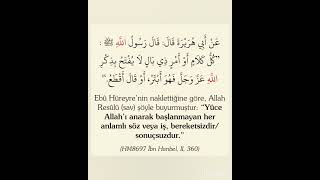 عَنْ أَبِي هُرَيْرَةَ قَالَ: قَالَ رَسُولُ اللَّهِ ﷺ :
”كُلُّ كَلَامٍ أَوْ أَمْرٍ ذِي بَالٍ لَا يُفْتَحُ بِذِكْرِ
اللَّهِ عَزَّ وَجَلَّ فَهُوَ أَبْتَرُ، أَوْ قَالَ أَقْطَعُ“
Ebû Hüreyre'nin naklettiğine göre, Allah
Resûlü (sav) şöyle buyurmuştur: “Yüce
Allah'ı anarak başlanmayan her
anlamlı söz veya iş, bereketsizdir/
sonuçsuzdur.”
(HM8697 İbn Hanbel, II, 360)